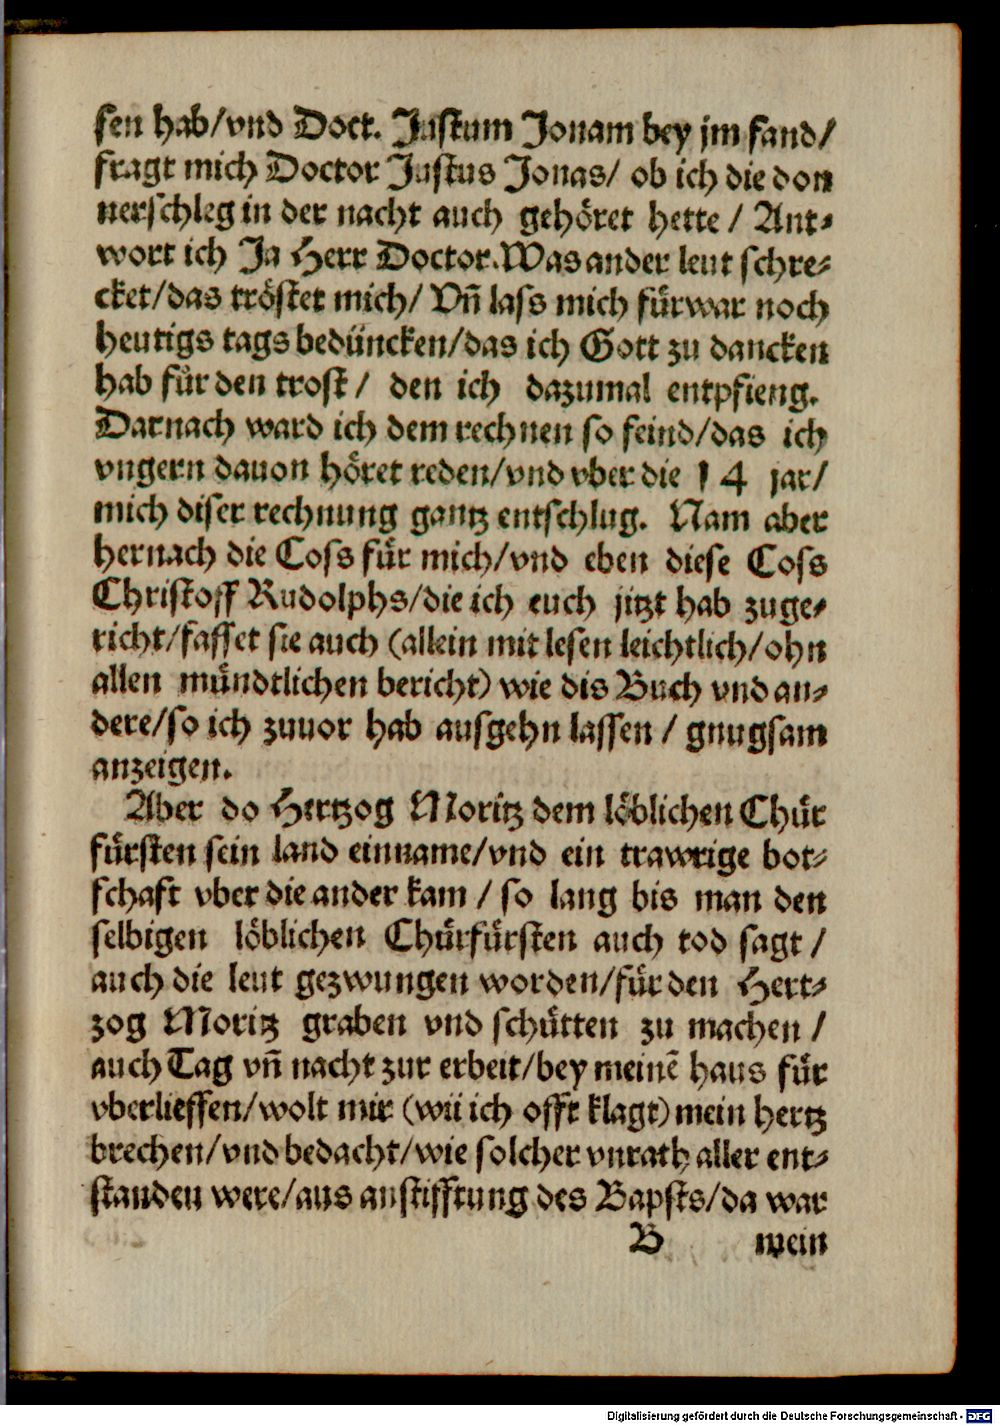 sen hab/vnd Doct. Justum Jonam bey jm fand/
fragt mich Doctor Justus Jonas/ ob ich die don
nerschleg in der nacht auch gehöret hette / Ant-
wort ich Ja Herr Doctor. Was ander leut schre-
cket/das tröstet mich/ Vñ lass mich fürwar noch
heutigs tags bedüncken/das ich Gott zu dancken
hab für den trost / den ich dazumal entpfieng.
Darnach ward ich dem rechnen so feind/das ich
vngern dauon höret reden/vnd vber die 14 jar/
mich diser rechnung gantz entschlug. Nam aber
hernach die Coss für mich/vnd eben diese Coss
Christoff Rudolphs/die ich euch jitzt hab zuge-
richt/fasset sie auch (allein mit lesen leichtlich/ohn
allen mündtlichen bericht) wie dis Buch vnd an-
dere/so ich zuuor hab ausgehn lassen / gnugsam
anzeigen.
Aber do Hertzog Moritz dem löblichen Chür
fürsten sein land einname/vnd ein trawrige bot-
schaft vber die ander kam / so lang bis man den
selbigen löblichen Chürfürsten auch tod sagt /
auch die leut gezwungen worden/für den Hert-
zog Moritz graben vnd schütten zu machen /
auch Tag vñ nacht zur erbeit/bey meinē haus für
vberlieffen/wolt mir (wii ich offt klagt) mein hertz
brechen/vnd bedacht/wie solcher vnrath aller ent-
standen were/aus anstifftung des Bapsts/da war
B mein
Digitalisierung gefördert durch die Deutsche Forschungsgemeinschaft - DFG